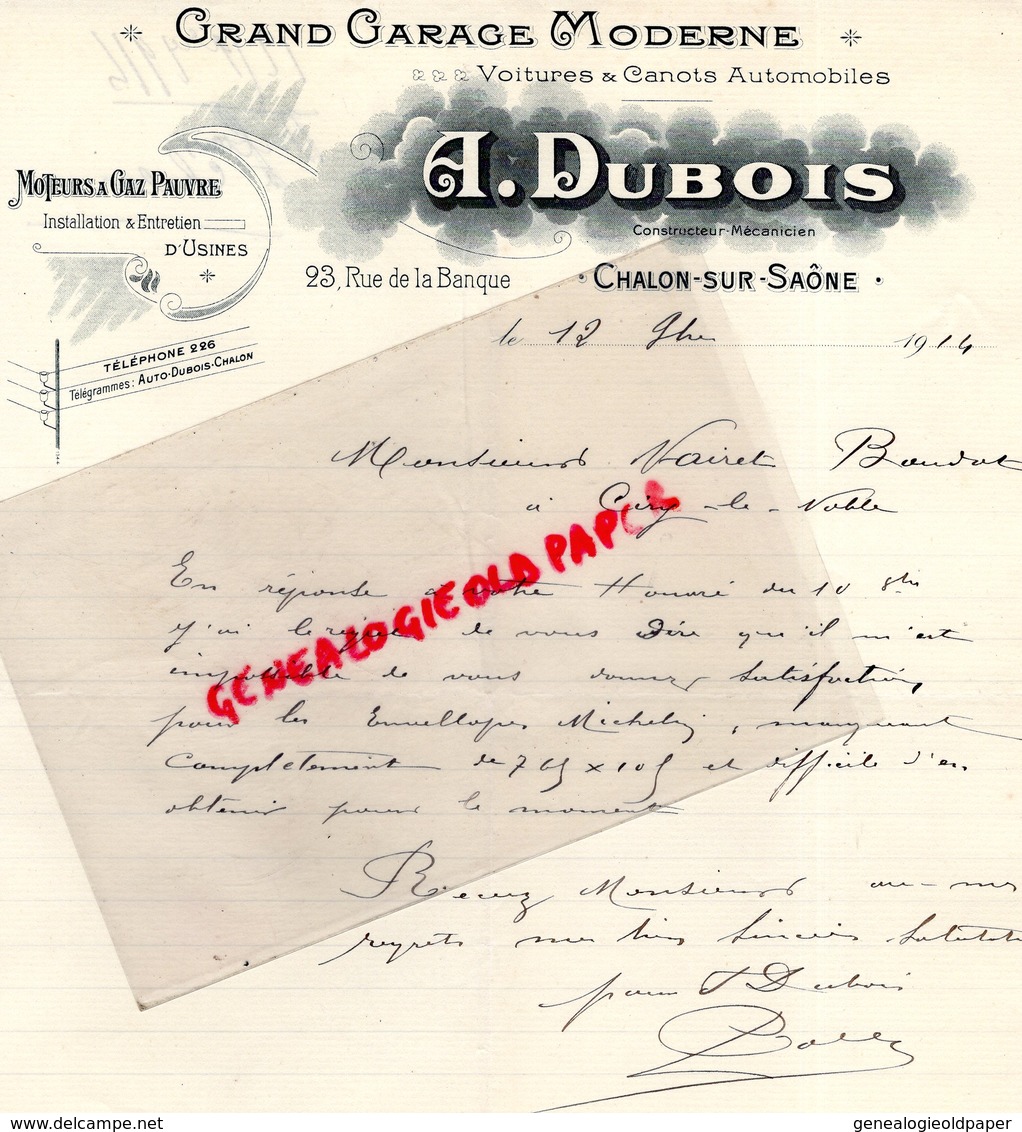 GRAND GARAGE MODERNE
Voitures & Canots Automobiles
A. DUBOIS
Constructeur-Mécanicien
MOTEURS A GAZ PAUVRE
Installation & Entretien
D'USINES
23, Rue de la Banque
CHALON-SUR-SAÔNE
TÉLÉPHONE 226
Télégrammes: AUTO-DUBOIS-CHALON
le 12 9bre 1914
Monsieur Vairet Baudot
à Ciry-le-Noble
En réponse à votre Honoré du 10 9bre
j'ai le regret de vous dire qu'il m'est
impossible de vous donner satisfaction,
pour les Enveloppes Michelin, manquant
complètement de 765 x 105 et difficile d'en
obtenir pour le moment
Recevez Monsieur
regrets mes bien sincères
pour A Dubois
GENEALOGIE OLD PAPER
delcampe.net
genealogieoldpaper